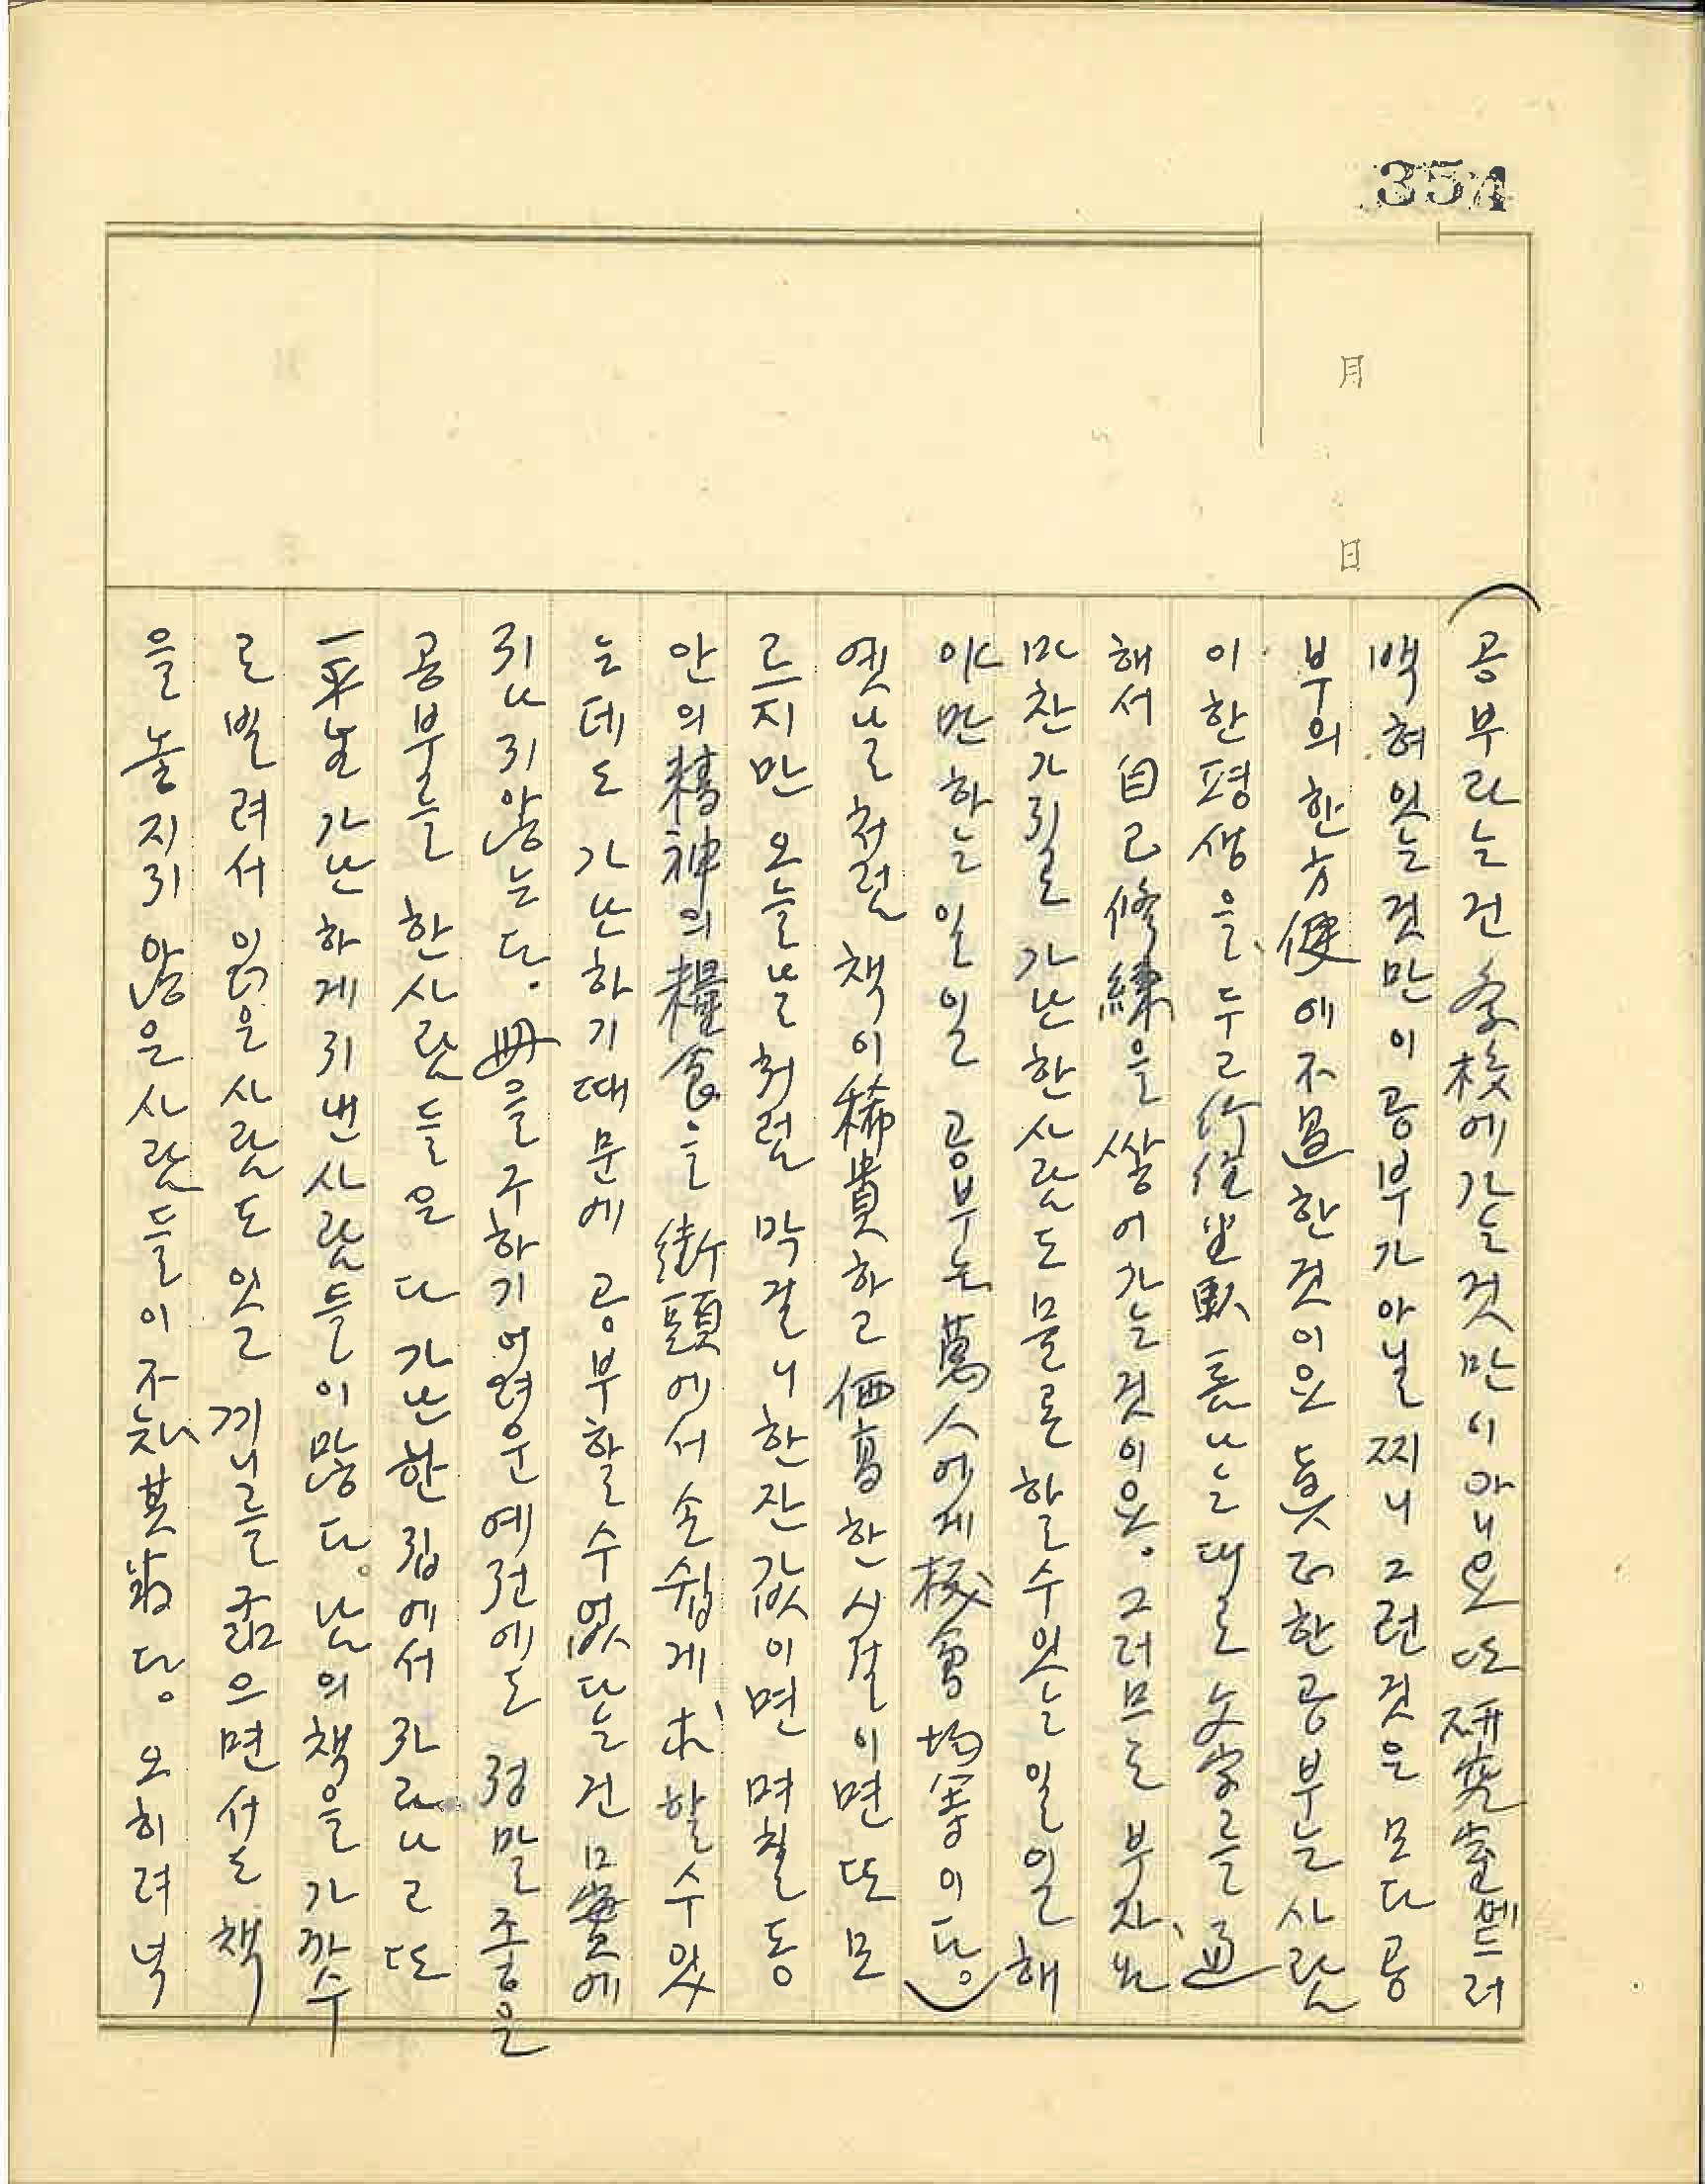 354
月
日
(공부라는건 學校에가는것만이아니요 또 硏究室쎄드러
백혀잇는것만이공부가아닐찌니그런것은모다공
부의한方便에不過한것이요 眞正한공부는사람
이한평생을、두고 通
해서 自己修練을쌓어가는것이요. 그러므로 부자、뿐
마찬가지로 가난한사람도 물론 할수있는일일해
야만하는일일 공부는萬人에게機會 均等이다。)
옛날처럼 책이稀貴하고 価高한시절이면 또 모
르지만 오늘날처럼 막걸니한잔값이면 며칠동
안의精神의糧食을 街頭에서손쉽게、求할수있
는데도 가난하기때문에 공부할수없다는건 口實에
지나지않는다. 冊을구하기어려운예전에도 정말좋은
공부를 한사람들은 다가난한집에서 자라나고또
一平生가난하게지낸사람들이많다。남의책을가깟수
로빌려서읽은사람도잇고 끼니를굶으면서도 책
을놓지지않은사람들이不知其數다。오히려넉